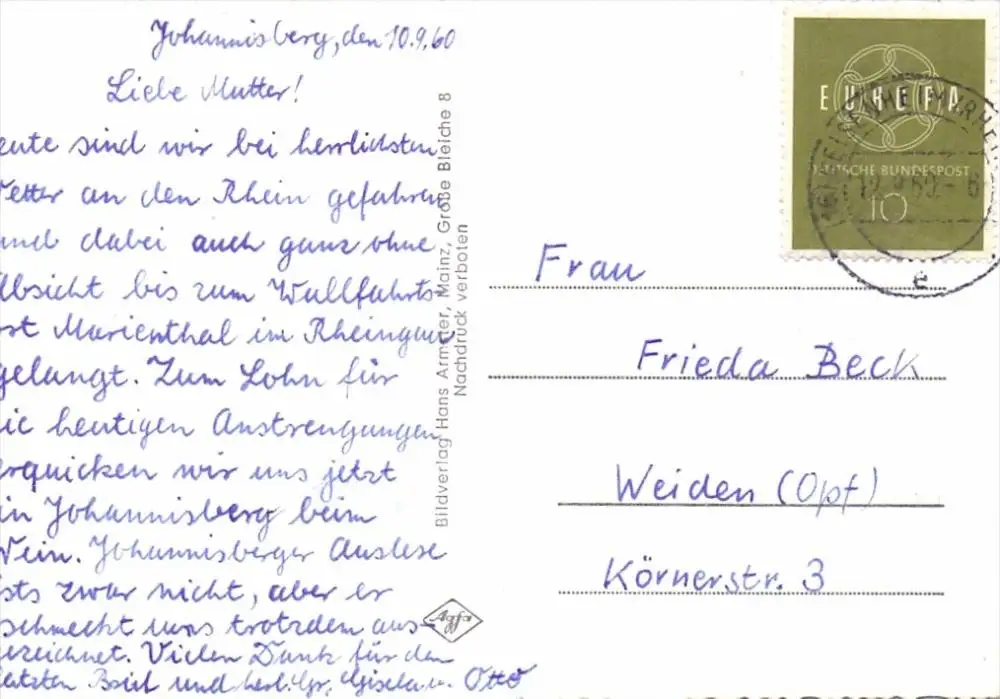 Johannisberg, den 10.9.60
Liebe Mutter!
eute sind wir bei herrlichsten
etter an den Rhein gefahren
und dabei auch ganz ohne
Absicht bis zum Wallfahrts-
rt Marienthal im Rheingau
gelangt. Zum Lohn für
ie heutigen Anstrengungen
erquicken wir uns jetzt
in Johannisberg beim
Wein. Johannisberger Auslese
sts zwar nicht, aber er
schmeckt uns trotzdem aus-
ezeichnet. Vielen Dank für den
letzten Brief und herl. Gr. Gisela u. Otto
Bildverlag Hans Armster, Mainz, Große Bleiche 8
Nachdruck verboten
Agfa
EUROPA
DEUTSCHE BUNDESPOST
10
e
Frau
Frieda Beck
Weiden (Opf)
Körnerstr. 3